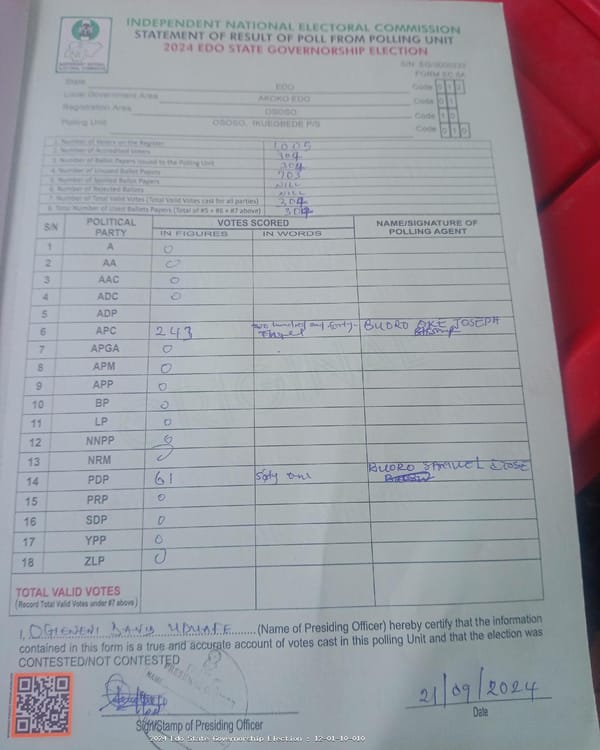 INDEPENDENT NATIONAL ELECTORAL COMMISSION
STATEMENT OF RESULT OF POLL FROM POLLING UNIT
2024 EDO STATE GOVERNORSHIP ELECTION
FORM EC 8A
State EDO Code 0 1 2
Local Government Area AKOKO EDO Code 0 1
Registration Area OSOSO Code 1 0
Polling Unit OSOSO, IKUEGBEDE P/S Code 0 1 0
1. Number of Voters on the Register 1005
2. Number of Accredited Voters 304
3. Number of Ballot Papers Issued to the Polling Unit
4. Number of Unused Ballot Papers 703
5. Number of Spoiled Ballot Papers NILL
6. Number of Rejected Ballots NILL
7. Number of Total Valid Votes (Total Valid Votes cast for all parties) 304
8. Total Number of Used Ballots Papers (Total of #5 + #6 + #7 above) 304
S/N POLITICAL PARTY VOTES SCORED NAME/SIGNATURE OF POLLING AGENT
IN FIGURES IN WORDS
1 A 0
2 AA 0
3 AAC 0
4 ADC 0
5 ADP
6 APC 243 two hundred and forty- BUORO OKE JOSEPH
7 APGA 0
8 APM 0
9 APP 0
10 BP 0
11 LP 0
12 NNPP 0
13 NRM 0
14 PDP 61 Sixty one BUORO SAMUEL
15 PRP 0
16 SDP 0
17 YPP 0
18 ZLP 0
TOTAL VALID VOTES
(Record Total Valid Votes under #7 above)
I, (Name of Presiding Officer) hereby certify that the information
contained in this form is a true and accurate account of votes cast in this polling Unit and that the election was
CONTESTED/NOT CONTESTED
21/09/2024
Sign/Stamp of Presiding Officer Date
2024 Edo State Governorship Election : 12-01-10-010